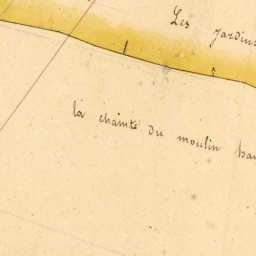 Les jardins
la chainte du moulin